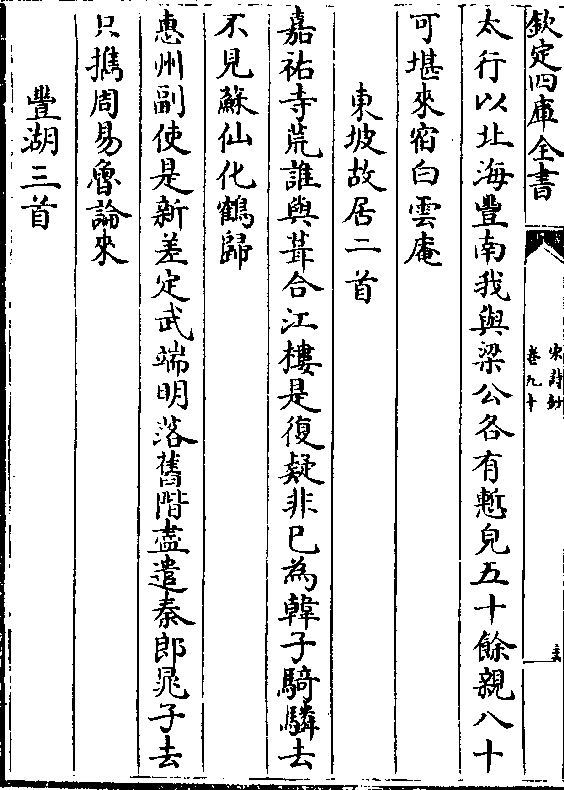 欽定四庫全書
宋詩鈔
卷九十
太行以北海豐南我與梁公各有慙皃五十餘親八十
可堪來宿白雲庵
東坡故居二首
嘉祐寺荒誰與葺合江樓是復疑非已為韓子騎驎去
不見蘇仙化鶴歸
惠州副使是新差定武端明落舊階盡遣秦郎晁子去
只擕周易魯論來
豐湖三首